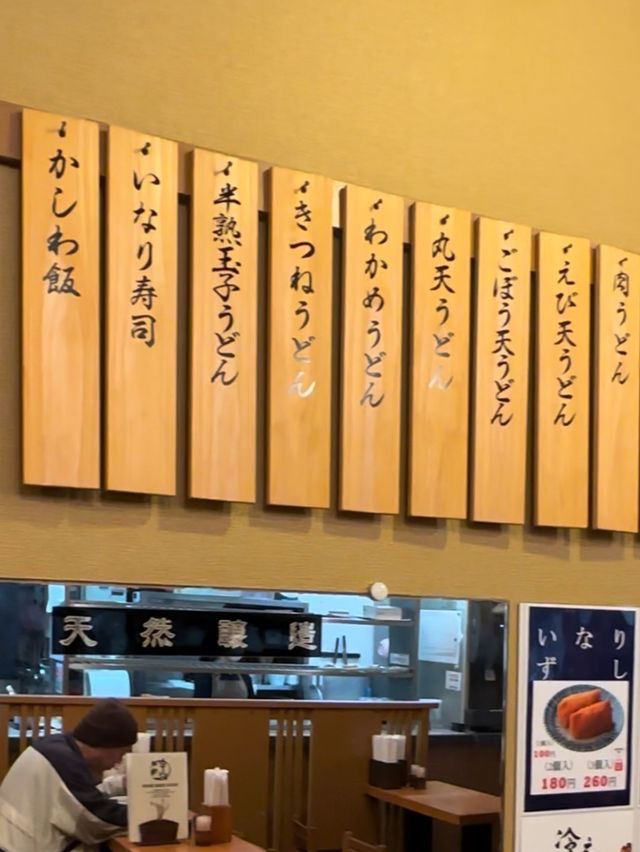 肉うどん
えび天うどん
ごぼう天うどん
丸天うどん
わかめうどん
きつねうどん
半熟玉子うどん
いなり寿司
かしわ飯
天然醸造
いなり
ずし
100円
(2個入)
180円
(3個入)
260円